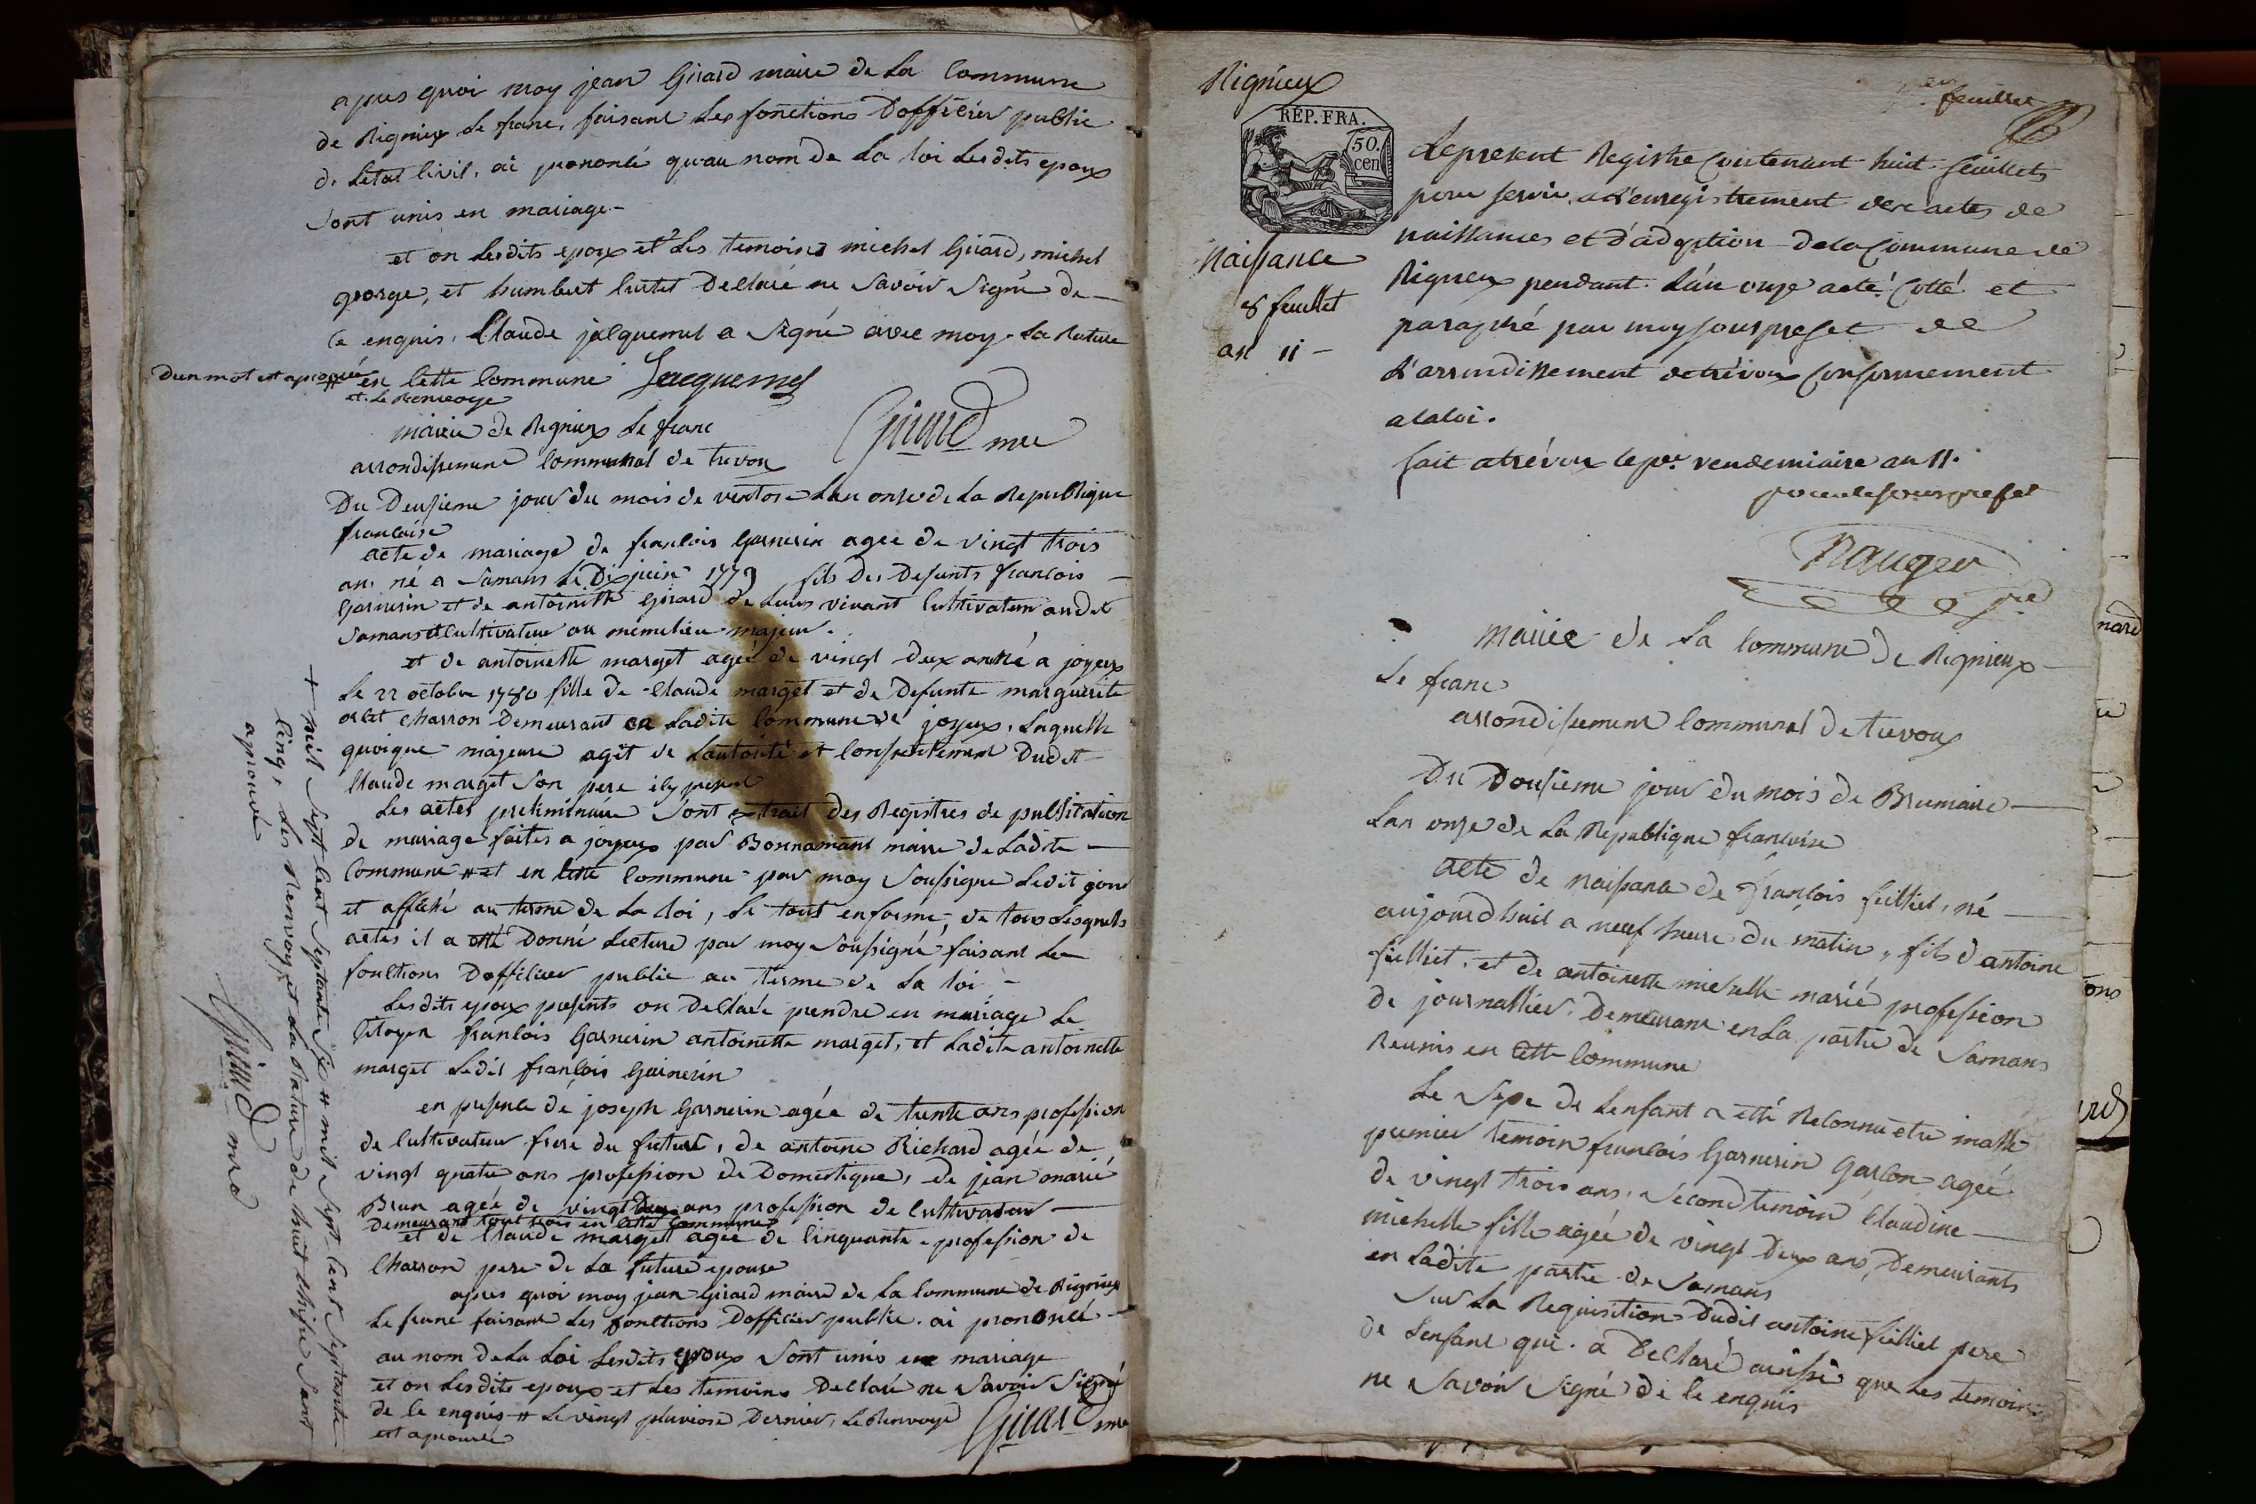 apres quoi moy jean Girard maire de La Commune
de Rignieux Le franc, faisant Les fonctions Dofficier public
de Letat Civil, ai prononcé quau nom de La loi Lesdits epoux
sont unis en mariage -
et on Lesdits epoux et Les temoins michel Girard, michel
george, et humbert Declaré ne Savoir Signé de
Ce enquis, Claude jacquemet a Signé avec moy. La Rature
Dun mot est aprouvé en Cette Commune Jacquemet
et Le Renvoye
Girard mre
mairie de Rignieux Le franc
arrondissement Communal de trevoux
Du Deusieme jour du mois de ventose Lan onse de La Republique
francaise
acte de mariage de francois Garnerin agee de vingt trois
ans né a Samans Le Dix juin 1779 fils Des Defunts francois
Garnerin et de antoinette Girard de Leurs vivant Cultivateur audit
Samans et Cultivateur au meme lieu majeur.
et de antoinette marget ageé de vingt deux an né a joyeux
Le 22 octobre 1780 fille de Claude marget et de Defunte marguerite
Charron Demeurant en Ladite Commune de joyeux, Laquelle
quoique majeure agit de Lautorité et Consentement Dudit
Claude marget Son pere ily present
Les actes preliminaire Sont extrait des Registres de publication
de mariage faites a joyeux par Bonnamant maire de Ladite
Commune # et en Cette Commune par moy Soussigne Ledit jour
et affiché au terme de La loi, Le tout en forme, de tous Lesquels
actes il a etté Donné Lecture par moy Soussigné faisant Les
fonctions Dofficier public au terme de La loi -
Lesdits epoux presents on Declaré prendre en mariage Le
Citoyen francois Garnerin antoinette marget, et Ladite antoinette
marget Ledit francois Garnerin
en presence de joseph Garnerin agée de trente ans profession
de Cultivateur frere du futur, de antoine Richard agée de
vingt quatre ans profession de Domestique, de jean marie
Brun agée de vingt Deux ans profession de Cultivateur
Demeurant tout trois en Cette Commune
et de Claude marget agée de Cinquante profession de
Charron pere de La future epouse
apres quoi moy jean Girard maire de La Commune de Rignieux
Le franc faisant Les fonctions Dofficier public. ai prononcé
au nom de La Loi Lesdits epoux Sont unis en mariage
et on Lesdits epoux et Les temoins Declaré ne Savoir Signé
de Ce enquis # Le vingt pluviose Dernier, Le Renvoyé
est aprouvé
Girard mre
+ mil Sept Cent Septante # mil Sept Cent Septante
Cinq, Les Renvoy et La Rature de huit Chifre Sont
aprouvé
Girard mre
Rignieux
REP. FRA.
50.
cen
Naissance
8 feuillet
an 11 -
feuillet
Le present Registre Contenant huit feuillets
pour servir a L'enregistrement des actes de
naissances et d'adoption de la Commune de
Rigneux pendant L'an onze a eté Cotté et
paraphé par moy sous prefet de
L'arrondissement de trévoux Conformement
a la loi.
fait a trévoux le per vendemiaire an 11.
pour le sous prefet
Mairie de La Commune de Rignieux
Le franc
arrondissement Communal de trevoux
Du Dousieme jour du mois de Brumaire
Lan onse de La Republique francoise
acte de naissance de francois feilliet, né
aujourdhuit a neuf heure du matin, fils d antoine
feilliet, et de antoinette michelle marié profession
de journallier. Demeurant en La partie de Samans
Reunis en Cette Commune
Le Sexe de Lenfant a etté Reconnu etre malle
premier temoin francois Garnerin Garcon ageé
de vingt trois ans, Second temoin Claudine
michelle fille ageé de vingt Deux ans, Demeurants
en Ladite partie de Samans
Sur La Requisition Dudit antoine feilliet pere
de Lenfant qui. a Declaré ainssi que Les temoins
ne Savoir Signé de Ce enquis